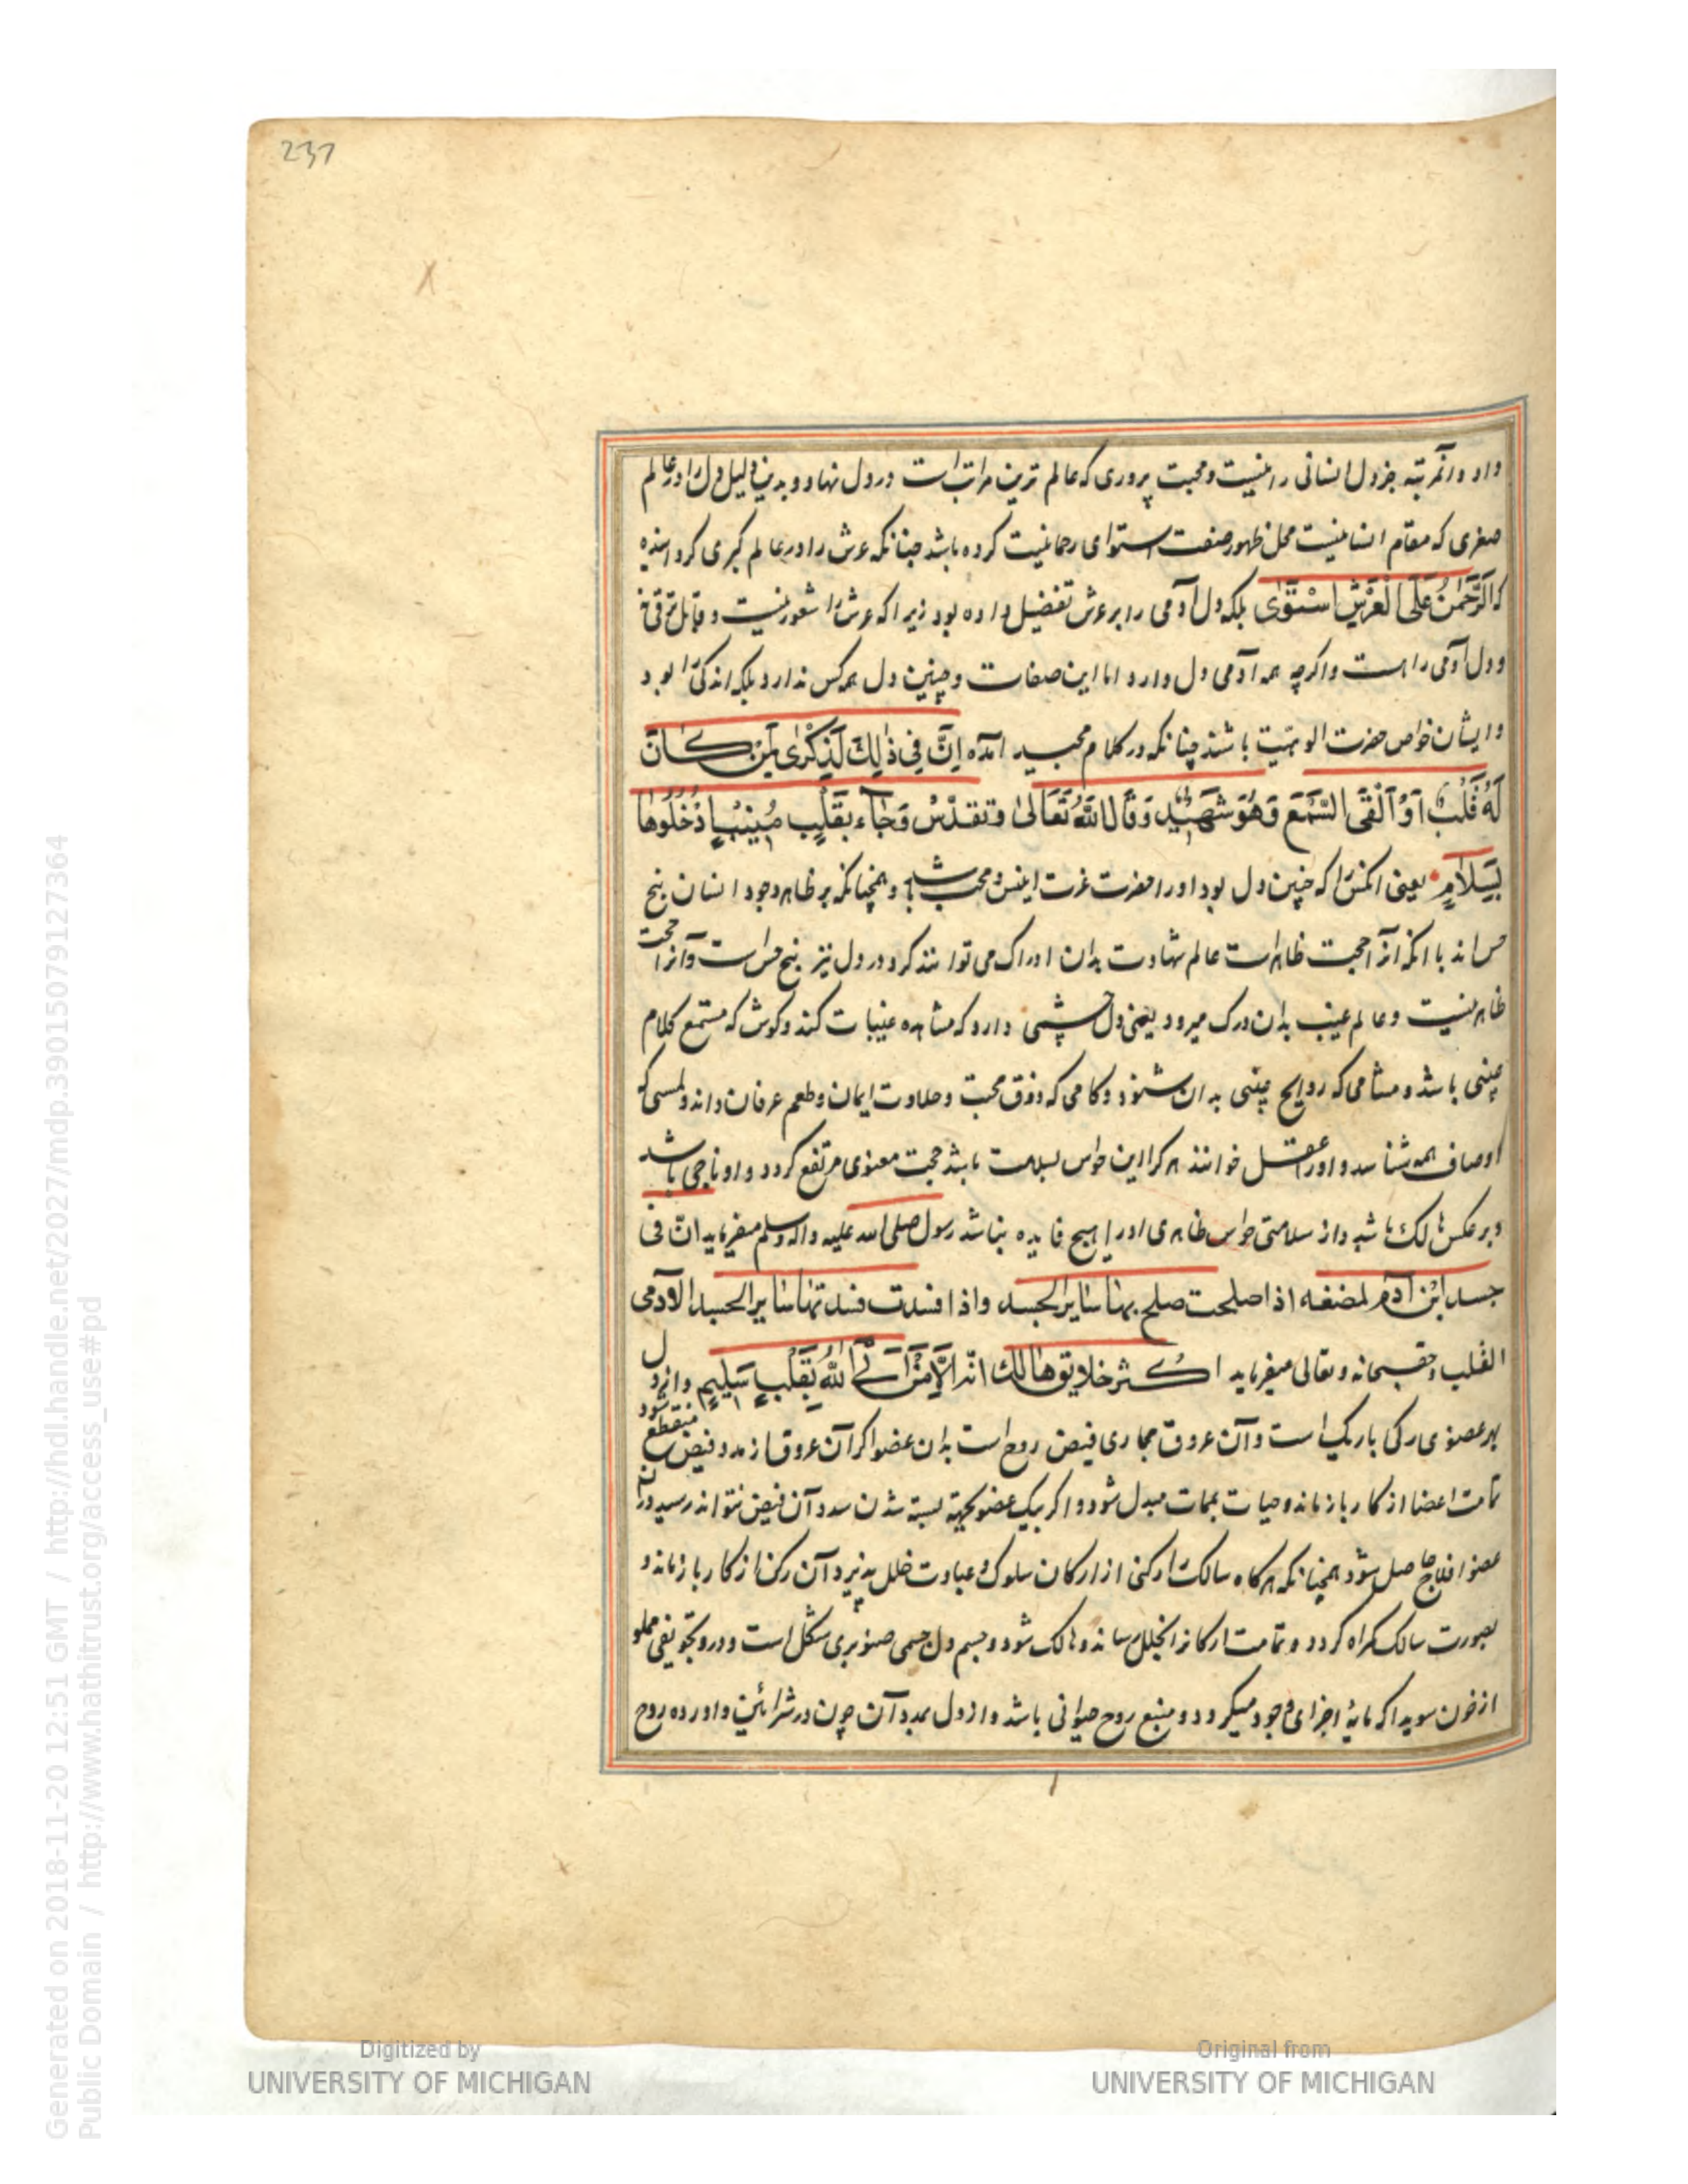 237
داد وانمرتبه جز دل انسانی را نیست ومحبت پروری که عالم ترین مراتب است در دل نهاد و بدین دلیل دل را در عالم
صغری که مقام انسانیست محل ظهور صفت استوای رحمانیت کرده باشد چنانکه عرش را در عالم کبری کرد
که الرَّحْمٰنُ عَلَى الْعَرْشِ اسْتَوٰى بلکه دل آدمی را بر عرش تفضیل داده بود زیرا که عرش را شعور نیست و قابل ترقی
و دل آدمی را هست واکرچه همه آدمی دل دارد اما این صفات و چنین دل همه کس ندارد بلکه اندکی را بود
وایشان خواص حضرت الوهیت باشند چنانکه در کلام مجید آمده اِنَّ فِي ذٰلِكَ لَذِكْرٰى لِمَنْ كَانَ
لَهُ قَلْبٌ اَوْ اَلْقَى السَّمْعَ وَهُوَ شَهِيْدٌ وَقَالَ اللّٰهُ تَعَالٰى وتقدّس وَجَآءَ بِقَلْبٍ مُنِيْبٍ اُدْخُلُوهَا
بِسَلَامٍ یعنی انکس را که چنین دل بود اورا حضرت عزت انیس ومحب باشد و همچنانکه بر ظاهر وجود انسان پنج
حس اند با انکه انرا حجیت ظاهر است عالم شهادت بدان ادراک می توانند کرد و در دل نیز پنج حس است وآنرا حجت
ظاهر نیست وعالم غیب بدان درک میرود یعنی دل چشمی دارد که مشاهده غیبات کند وکوش که مستمع کلام
غیبی باشد ومشامی که روایح غیبی بدان شنود وکامی که ذوق محبت وحلاوت ایمان وطعم عرفان داند ولمسی که
اوصاف همه شناسد و اورا عقل خوانند هرکرا این حواس بسلامت باشد حجت معنوی مرتفع کردد و او ناجی باشد
وبر عکس هالک باشد واز سلامتی حواس ظاهری اورا هیچ فایده نباشد رسول صلی الله علیه واله وسلم میفرماید ان فی
جسد ابن آدم لمضغه اذا صلحت صلح بها سایر الجسد واذا فسدت فسدت بها سایر الجسد الا وهی
القلب وحق سبحانه وتعالی میفرماید اکثر خلایق هالك اند اِلَّا مَنْ اَتَى اللّٰهَ بِقَلْبٍ سَلِيْمٍ واز دل
بهر عضوی رکی باریک است وآن عروق مجاری فیض روح است بدان عضو اکر آن عروق از مدد فیض منقطع شود
تمامت اعضا از کار باز ماند وحیات بممات مبدل شود و اکر بیک عضو بجهة بسته شدن سدد آن فیض نتواند رسید دران
عضو افلاج حاصل شود همچنانکه هرکاه سالک را رکنی از ارکان سلوک وعبادت خلل پذیرد آن رکن از کار باز ماند و
بصورت سالک کمراه کردد و تمامت ارکانرا بخلل رساند وهالک شود و جسم دل جسمی صنوبری شکل است و درو تجویفی مملو
از خون سویدا که مایۀ اجزای وجود میکردد ومنبع روح حیوانی باشد واز دل بمدد آن چون در شرائین و اورده روح
Digitized by
UNIVERSITY OF MICHIGAN
Original from
UNIVERSITY OF MICHIGAN
Generated on 2018-11-20 12:51 GMT / http://hdl.handle.net/2027/mdp.39015079127364
Public Domain / http://www.hathitrust.org/access_use#pd